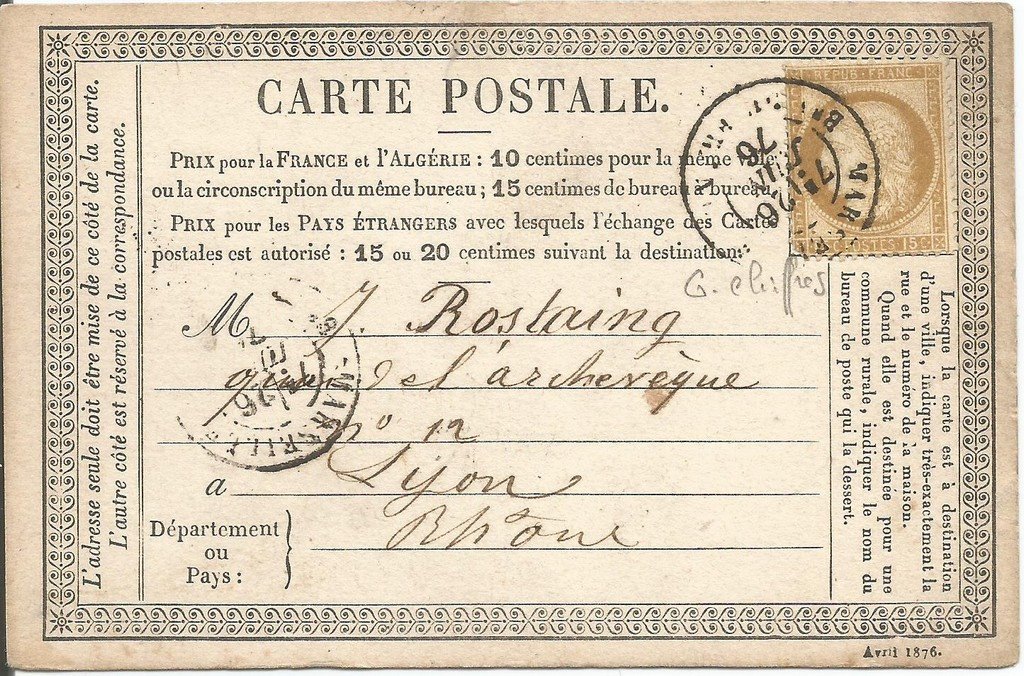 CARTE POSTALE.
PRIX pour la FRANCE et l'ALGÉRIE : 10 centimes pour la même ville
ou la circonscription du même bureau ; 15 centimes de bureau à bureau.
PRIX pour les PAYS ÉTRANGERS avec lesquels l'échange des Cartes
postales est autorisé : 15 ou 20 centimes suivant la destination.
L'adresse seule doit être mise de ce côté de la carte.
L'autre côté est réservé à la correspondance.
REPUB. FRANC.
POSTES 15c
G. chiffres
M. J. Rostaing
de l'archevêque
n° 12
a Lyon
Rhône
MARSEILLE
Département
ou
Pays :
Lorsque la carte est à destination
d'une ville, indiquer très-exactement la
rue et le numéro de la maison.
Quand elle est destinée pour une
commune rurale, indiquer le nom du
bureau de poste qui la dessert.
Avril 1876.